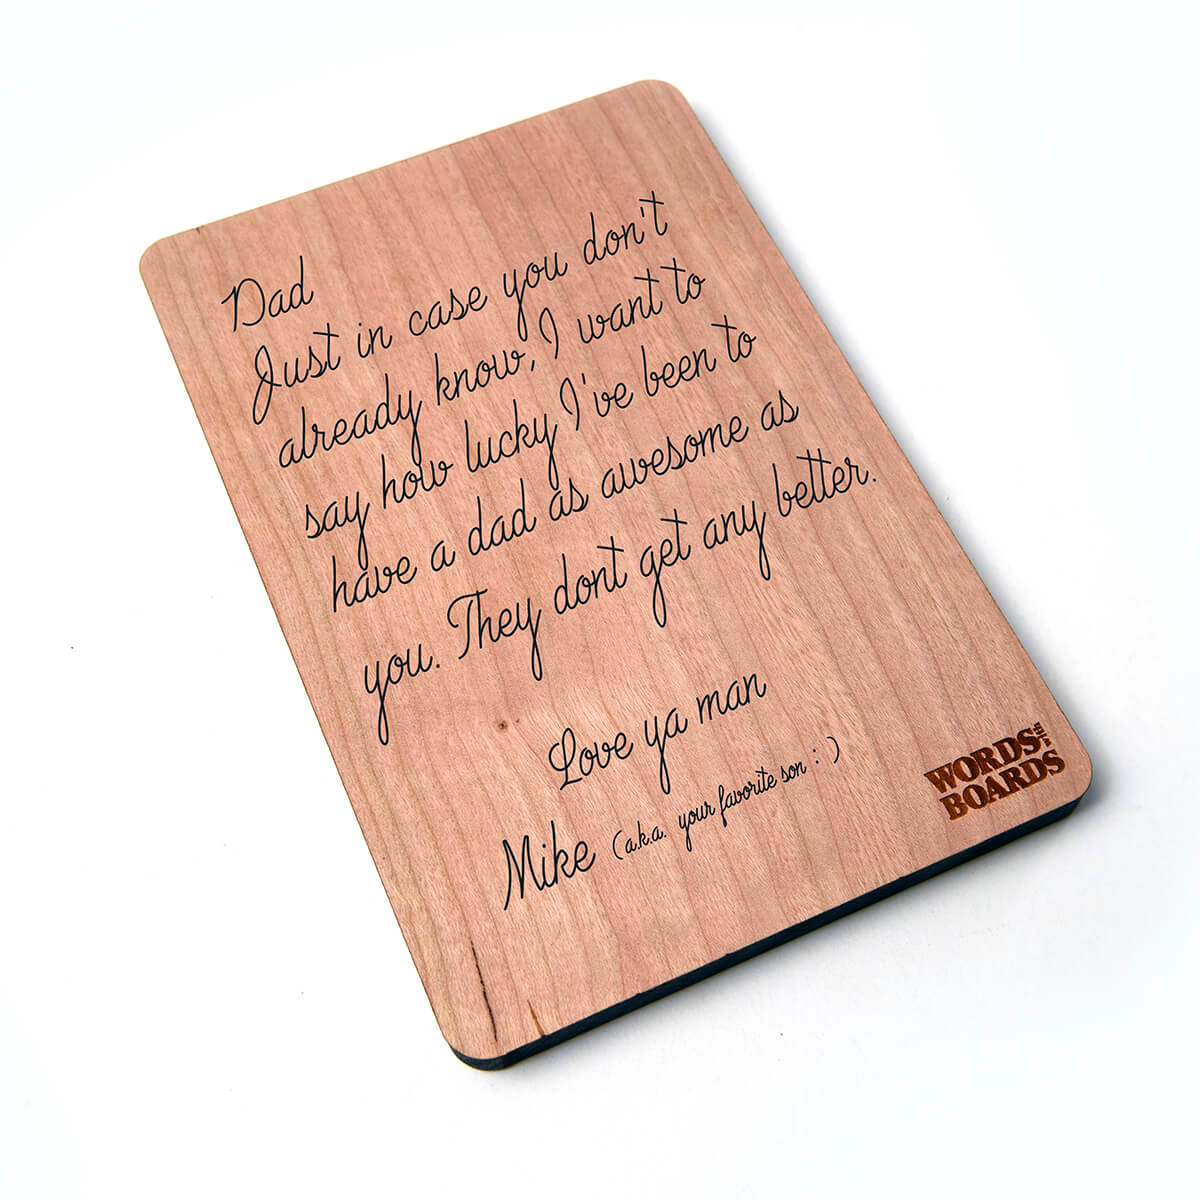 Dad
Just in case you don't
already know, I want to
say how lucky I've been to
have a dad as awesome as
you. They dont get any better.
Love ya man
Mike (a.k.a. your favorite son : )
WORDS with
BOARDS